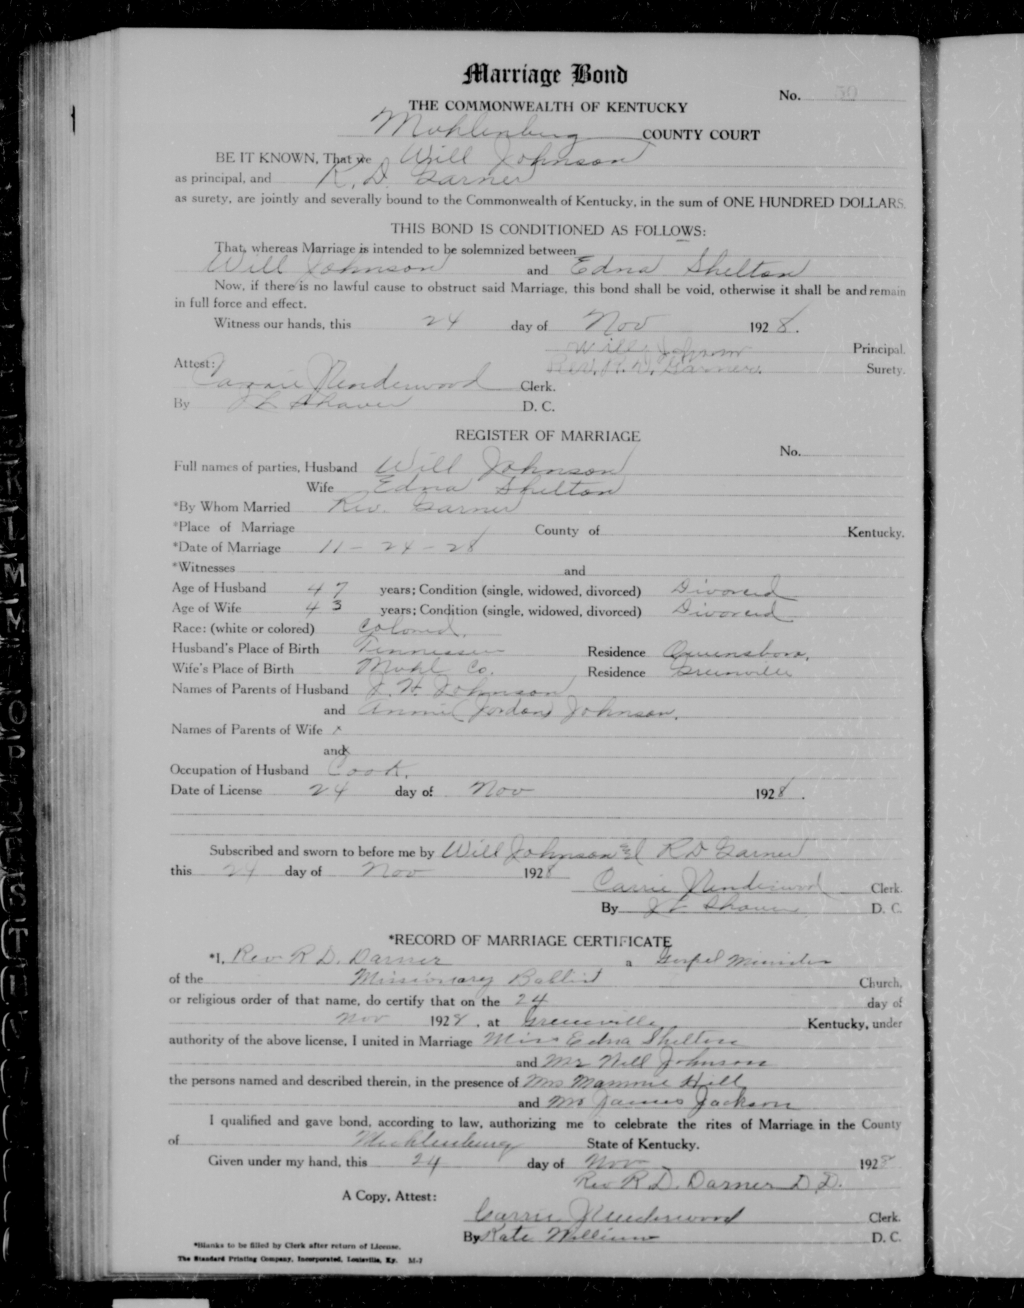 Marriage Bond
No. 50
THE COMMONWEALTH OF KENTUCKY
Muhlenberg COUNTY COURT
BE IT KNOWN, That we Will Johnson
as principal, and R. D. Garner
as surety, are jointly and severally bound to the Commonwealth of Kentucky, in the sum of ONE HUNDRED DOLLARS.
THIS BOND IS CONDITIONED AS FOLLOWS:
That, whereas Marriage is intended to be solemnized between
Will Johnson and Edna Shelton
Now, if there is no lawful cause to obstruct said Marriage, this bond shall be void, otherwise it shall be and remain
in full force and effect.
Witness our hands, this 24 day of Nov 1928.
Will Johnson Principal.
Attest: Rev. R. D. Garner. Surety.
Carrie Underwood Clerk.
By J L Shaver D. C.
REGISTER OF MARRIAGE
No.
Full names of parties, Husband Will Johnson
Wife Edna Shelton
*By Whom Married Rev. Garner
*Place of Marriage County of Kentucky.
*Date of Marriage 11-24-28
*Witnesses and
Age of Husband 47 years; Condition (single, widowed, divorced) Divorced
Age of Wife 43 years; Condition (single, widowed, divorced) Divorced
Race: (white or colored) Colored.
Husband's Place of Birth Tennessee Residence Owensboro,
Wife's Place of Birth Muhl Co. Residence Greenville
Names of Parents of Husband J. H. Johnson
and Annie (Jordon) Johnson.
Names of Parents of Wife x
and x
Occupation of Husband Cook.
Date of License 24 day of Nov 1928.
Subscribed and sworn to before me by Will Johnson and R D Garner
this 24 day of Nov 1928
Carrie Underwood Clerk.
By J L Shaver D. C.
*RECORD OF MARRIAGE CERTIFICATE
*I, Rev R D. Darner a Gospel Minister
of the Missionary Babtist Church,
or religious order of that name, do certify that on the 24 day of
Nov 1928, at Greenville Kentucky, under
authority of the above license, I united in Marriage Miss Edna Shelton
and Mr Will Johnson
the persons named and described therein, in the presence of Mrs Mammie Hill
and Mr James Jackson
I qualified and gave bond, according to law, authorizing me to celebrate the rites of Marriage in the County
of Muhlenburg State of Kentucky.
Given under my hand, this 24 day of Nov 1928
Rev R D. Darner D D.
A Copy, Attest:
Carrie Underwood Clerk.
By Kate Williams D. C.
*Blanks to be filled by Clerk after return of License.
The Standard Printing Company, Incorporated, Louisville, Ky. M-7